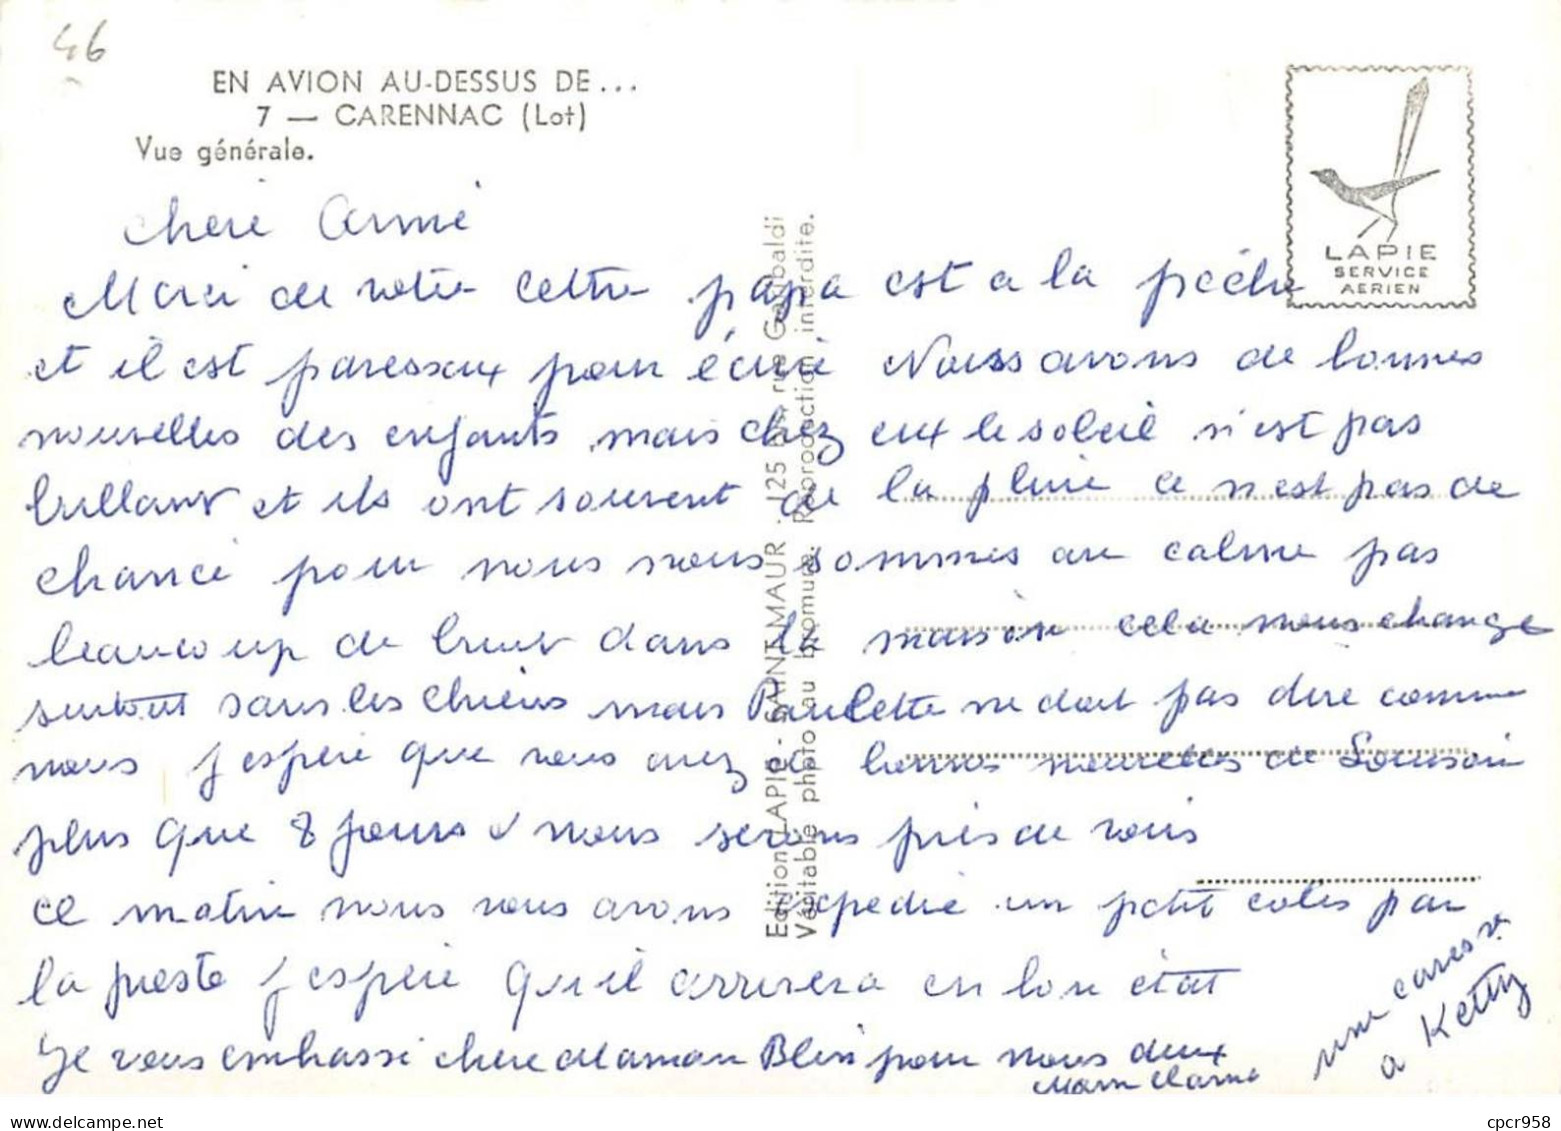 46
EN AVION AU-DESSUS DE...
7 — CARENNAC (Lot)
Vue générale.
LAPIE
SERVICE
AERIEN
Edition LAPIE - SAINT-MAUR - 125 bis, rue Garibaldi
Véritable photo au bromure. Reproduction interdite.
chere
Merci de votre lettre papa est a la pêche
et il est paresseux pour écrire Nous avons de bonnes
nouvelles des enfants mais chez eux le soleil n'est pas
brillant et ils ont souvent de la pluie ce n'est pas de
chance pour nous nous sommes au calme pas
beaucoup de bruit dans la maison cela nous change
surtout sans les chiens mais Paulette ne doit pas dire comme
nous j espere que vous avez de bonnes nouvelles de
plus que 8 jours et nous serons près de vous
ce matin nous vous avons expedié un petit colis par
la poste j espere qu il arrivera en bon état
Je vous embrasse chere Maman pour nous deux
une caresse
a Ketty
cpcr958